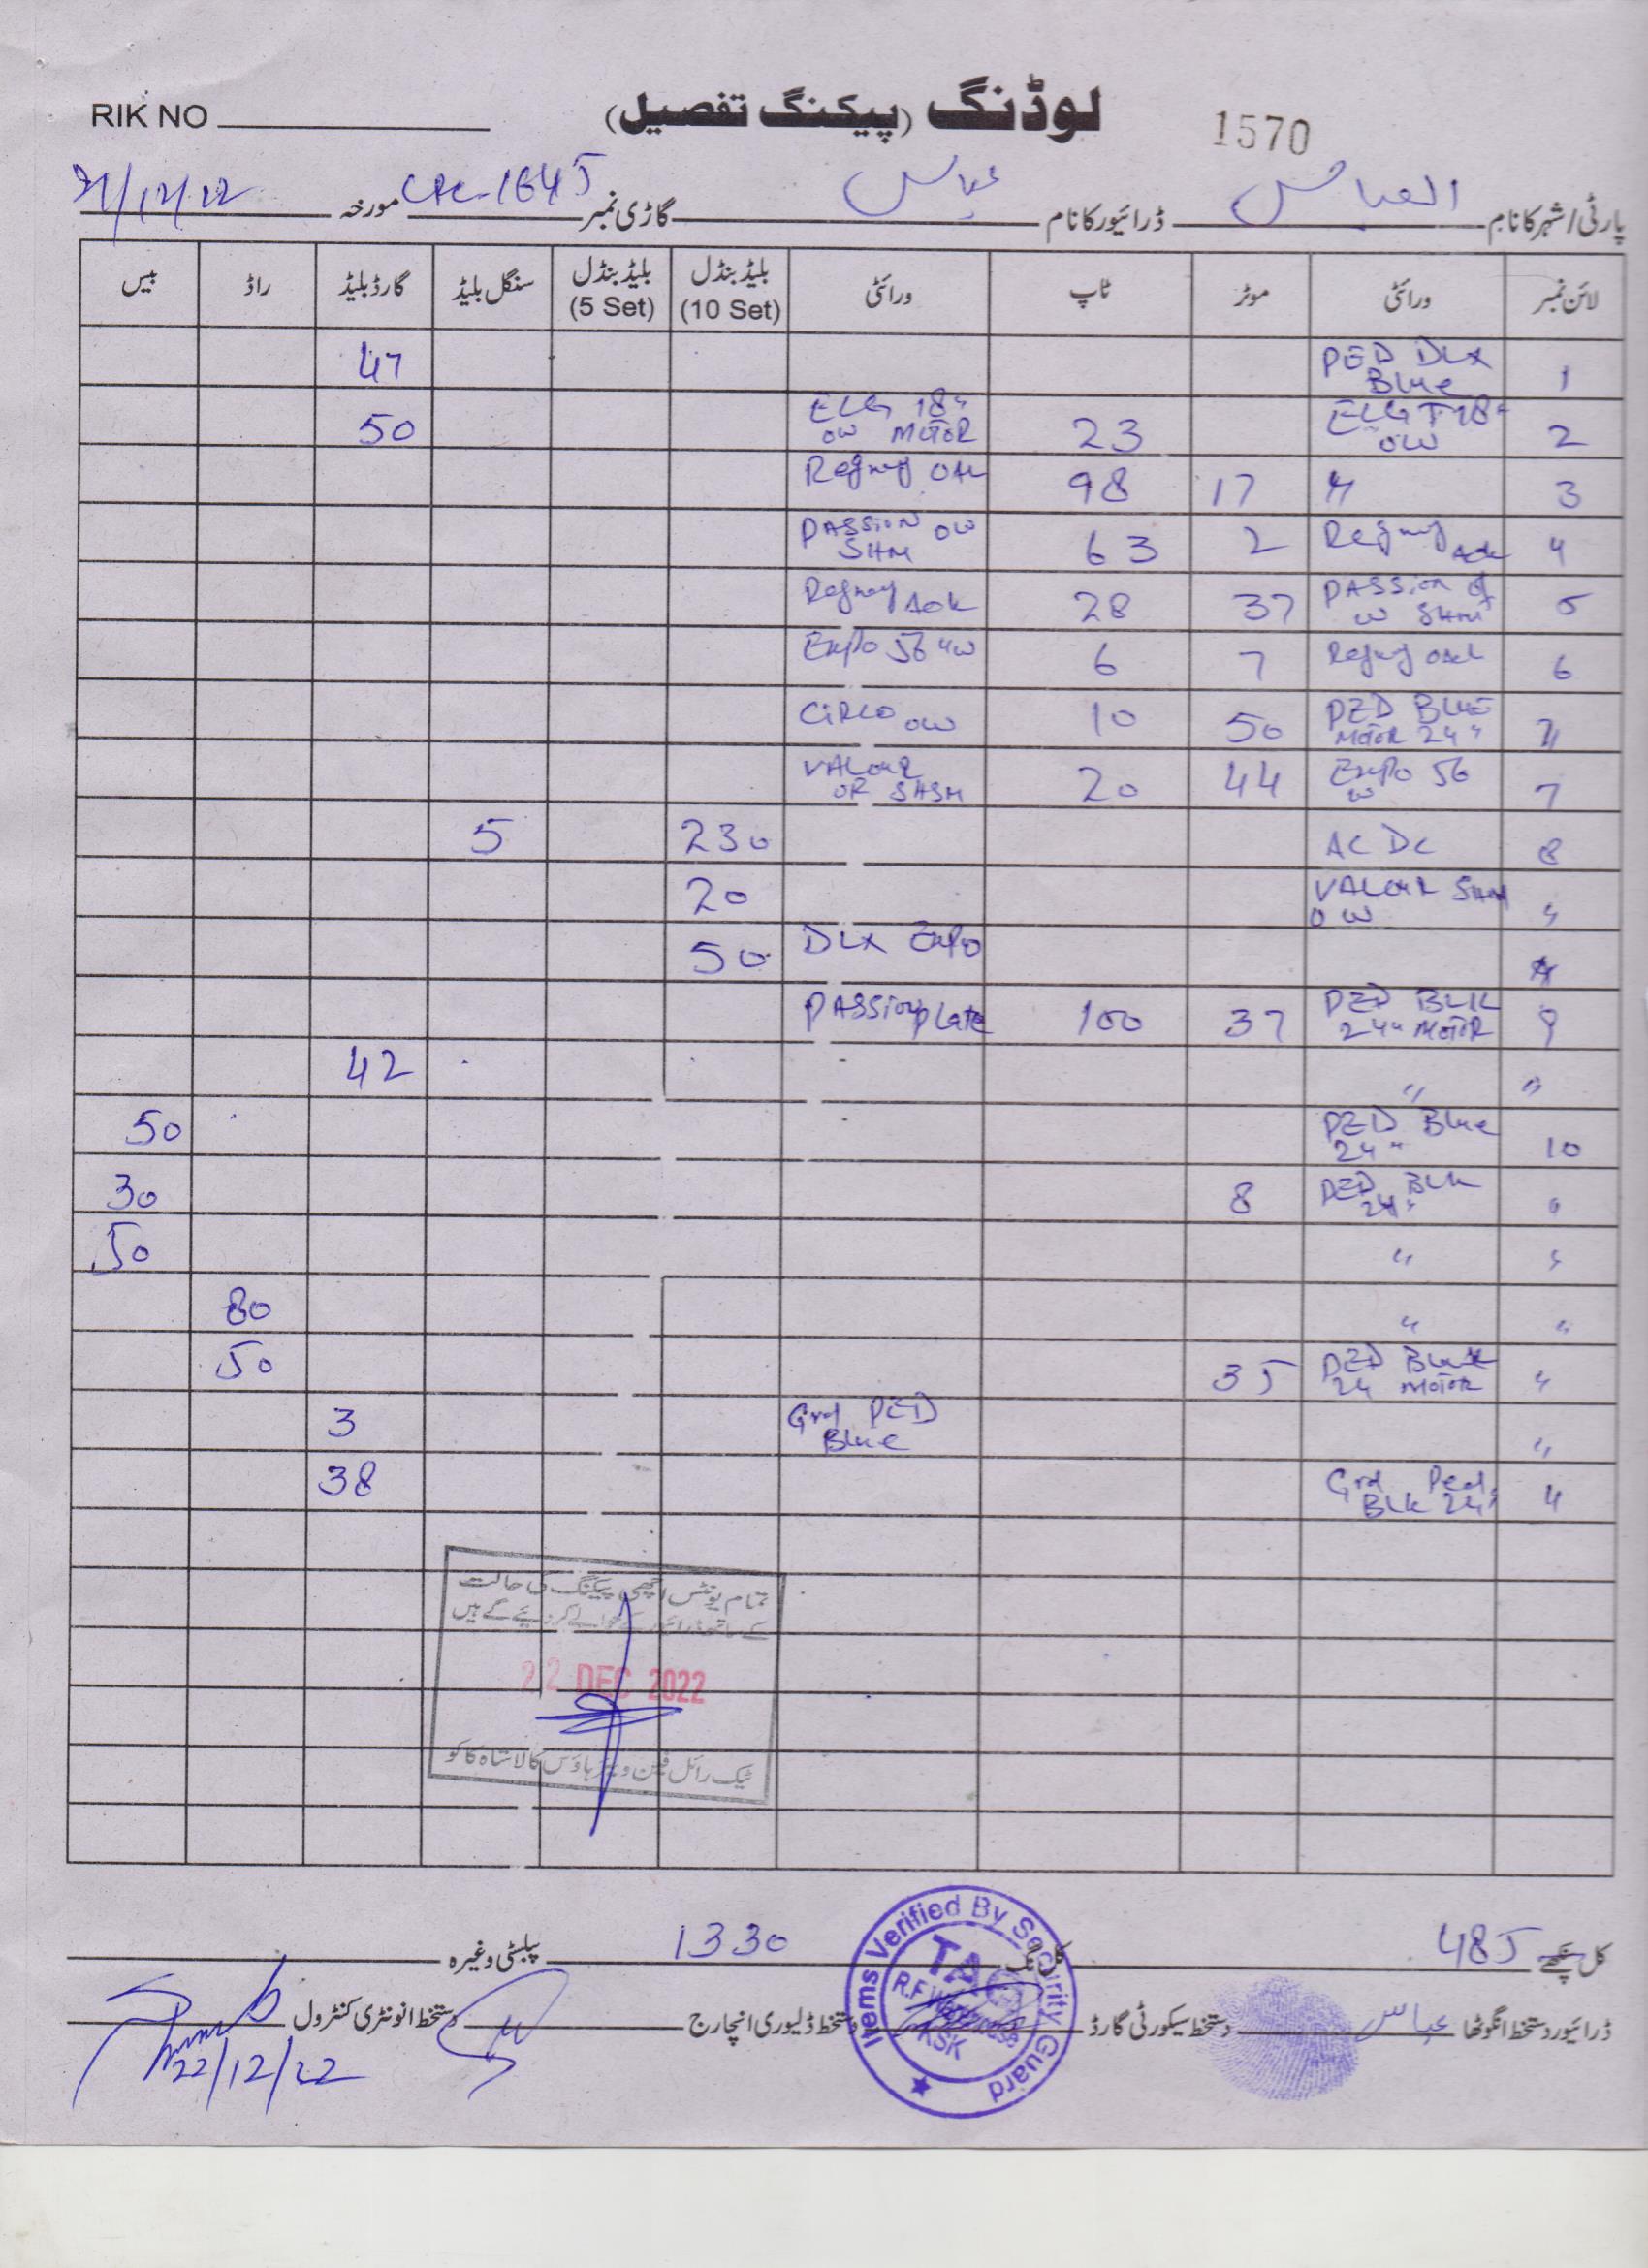 RIK NO
لوڈنگ (پیکنگ تفصیل)
1570
پارٹی/شہر کا نام العباس ڈرائیور کا نام عباس گاڑی نمبر 1645 مورخہ
لائن نمبر ورائٹی موٹر ٹاپ ورائٹی بلیڈ بنڈل (10 Set) بلیڈ بنڈل (5 Set) سنگل بلیڈ گارڈ بلیڈ راڈ بیس
1 PED DLX Blue 47
2 ELG 18" OW 23 ELG 18" OW MOTOR 50
3 " 17 98
4 2 63 PASSION OW SHM
5 37 PASSION SHM 28
6 7 6 Expo 56
7 50 PED BLUE MOTOR 24" 10 CIRCO OW
7 44 Expo 56 W 20 VALOUR
8 AC DC 230 5
" VALOUR SHM OW 20
DLX Expo 50
9 37 PED BLK 24" MOTOR 100 PASSION Plate
" " 42
10 PED Blue 24" 50
" 8 PED BLK 24" 30
" " 50
" " 80
" 35 PED 24 MOTOR 50
" Grd PED Blue 3
" Grd Ped BLK 24" 38
تمام یونٹس اچھی پیکنگ کی حالت
کے ساتھ ڈرائیور کے حوالے کر دیئے گئے ہیں
22 DEC 2022
ٹیک رائل فین ویئر ہاؤس کالا شاہ کاکو
کل پنکھے 485 کل نگ 1330 پلیٹی وغیرہ
ڈرائیور دستخط انگوٹھا عباس دستخط سیکورٹی گارڈ دستخط ڈلیوری انچارج دستخط انونٹری کنٹرول
Items Verified By Security Guard
R.F Warehouse
KSK
22/12/22